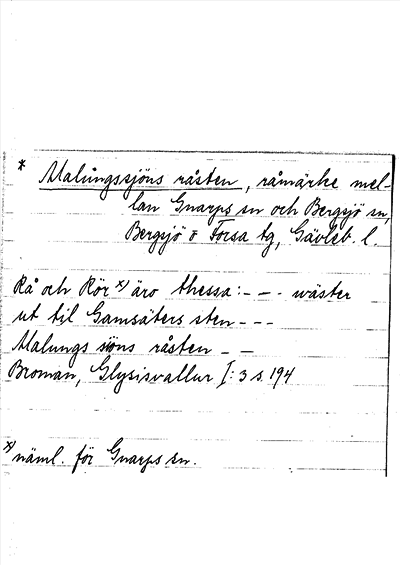 * Malungssjöns råsten, råmärke mel-
lan Gnarps sn och Bergsjö sn,
Bergsjö o Forsa tg, Gävleb. l.
Rå och Rör x) äro thessa: - - - wäster
ut til Gamsäters sten - - -
Malungs siöns råsten - -
Broman, Glysisvallur I: 3 s. 194
x) näml. för Gnarps sn.